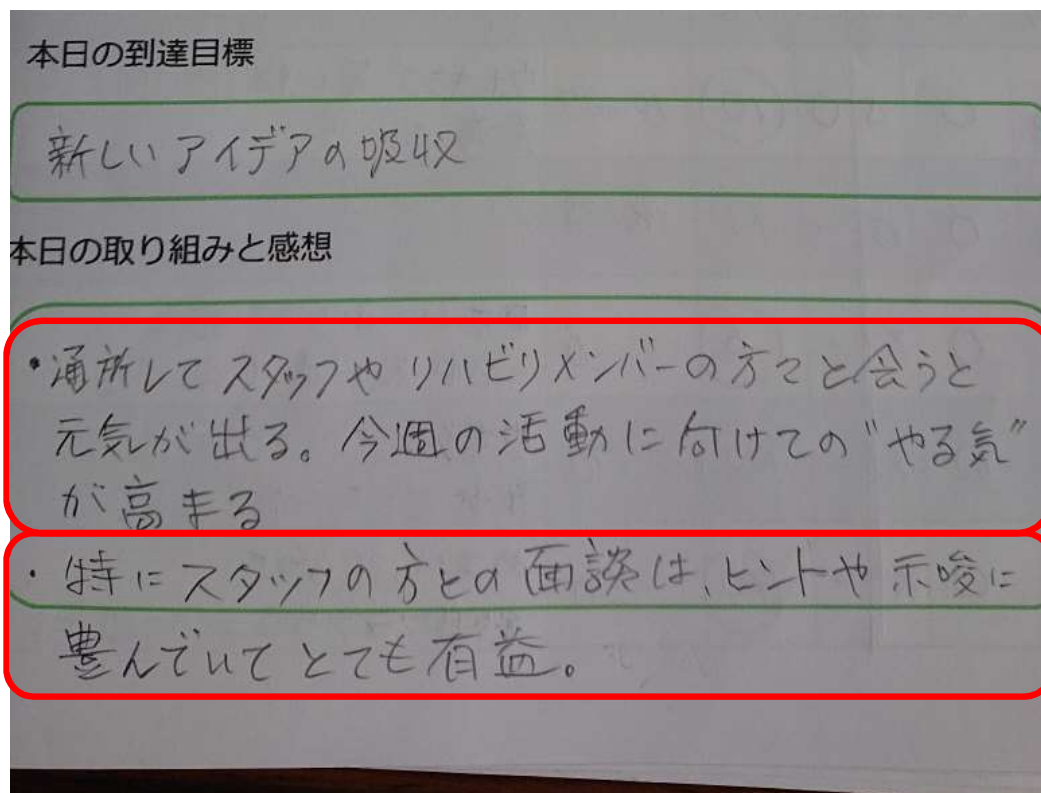 本日の到達目標
新しいアイデアの吸収
本日の取り組みと感想
・通所してスタッフやリハビリメンバーの方々と会うと
元気が出る。今週の活動に向けての"やる気"
が高まる
・特にスタッフの方との面談は、ヒントや示唆に
豊んでいてとても有益。